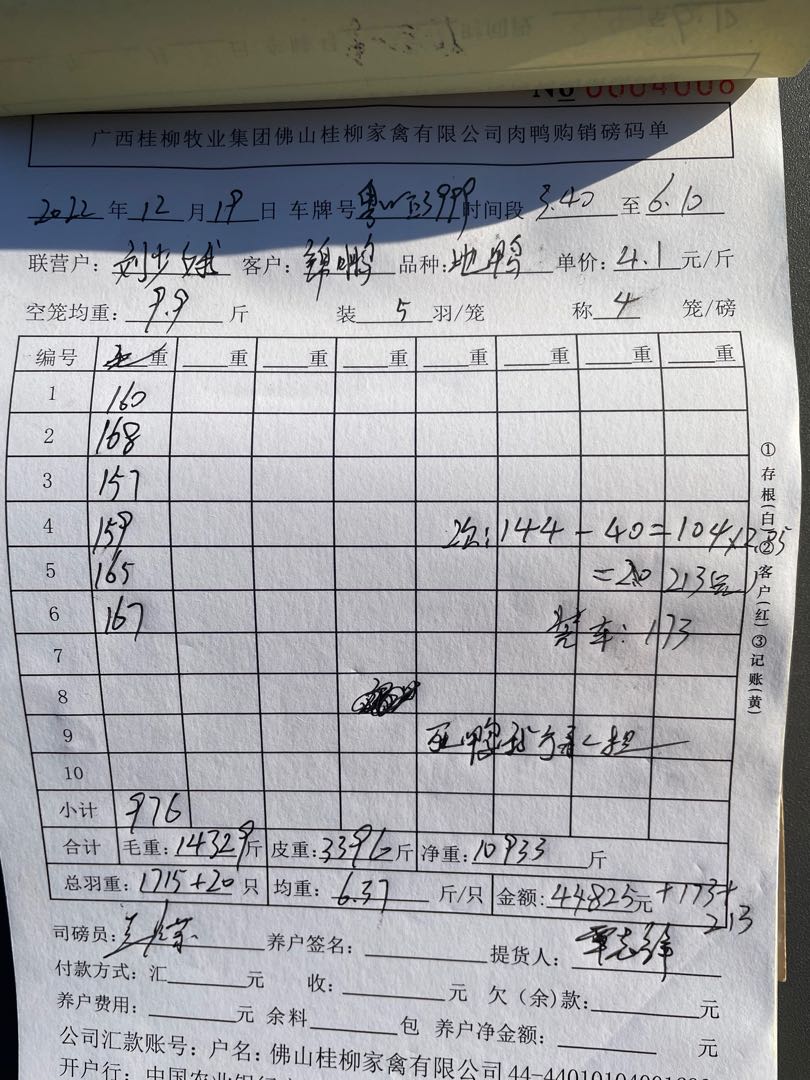 No 0004006
广西桂柳牧业集团佛山桂柳家禽有限公司肉鸭购销磅码单
2022年12月19日 车牌号 时间段3.40至6.10
联营户: 客户:锦鸭 品种:地鸭 单价:4.1元/斤
空笼均重:9.9斤 装5羽/笼 称4笼/磅
编号 重 重 重 重 重 重 重 重
1 160
2 168
3 157
4 159 次:144-40=104×2.05
5 165 =20 213
6 167 装车:173
7
8
9
10
小计 976
合计 毛重:14329斤 皮重:3396斤 净重:10933斤
总羽重:1715+20只 均重:6.37斤/只 金额:44825元+173+
213
司磅员: 养户签名: 提货人:覃志锋
付款方式:汇 元 收: 元 欠(余)款: 元
养户费用: 元 余料 包 养户净金额: 元
公司汇款账号:户名:佛山桂柳家禽有限公司44-44010104001
开户行:中国农业银行
①存根(白)②客户(红)③记账(黄)